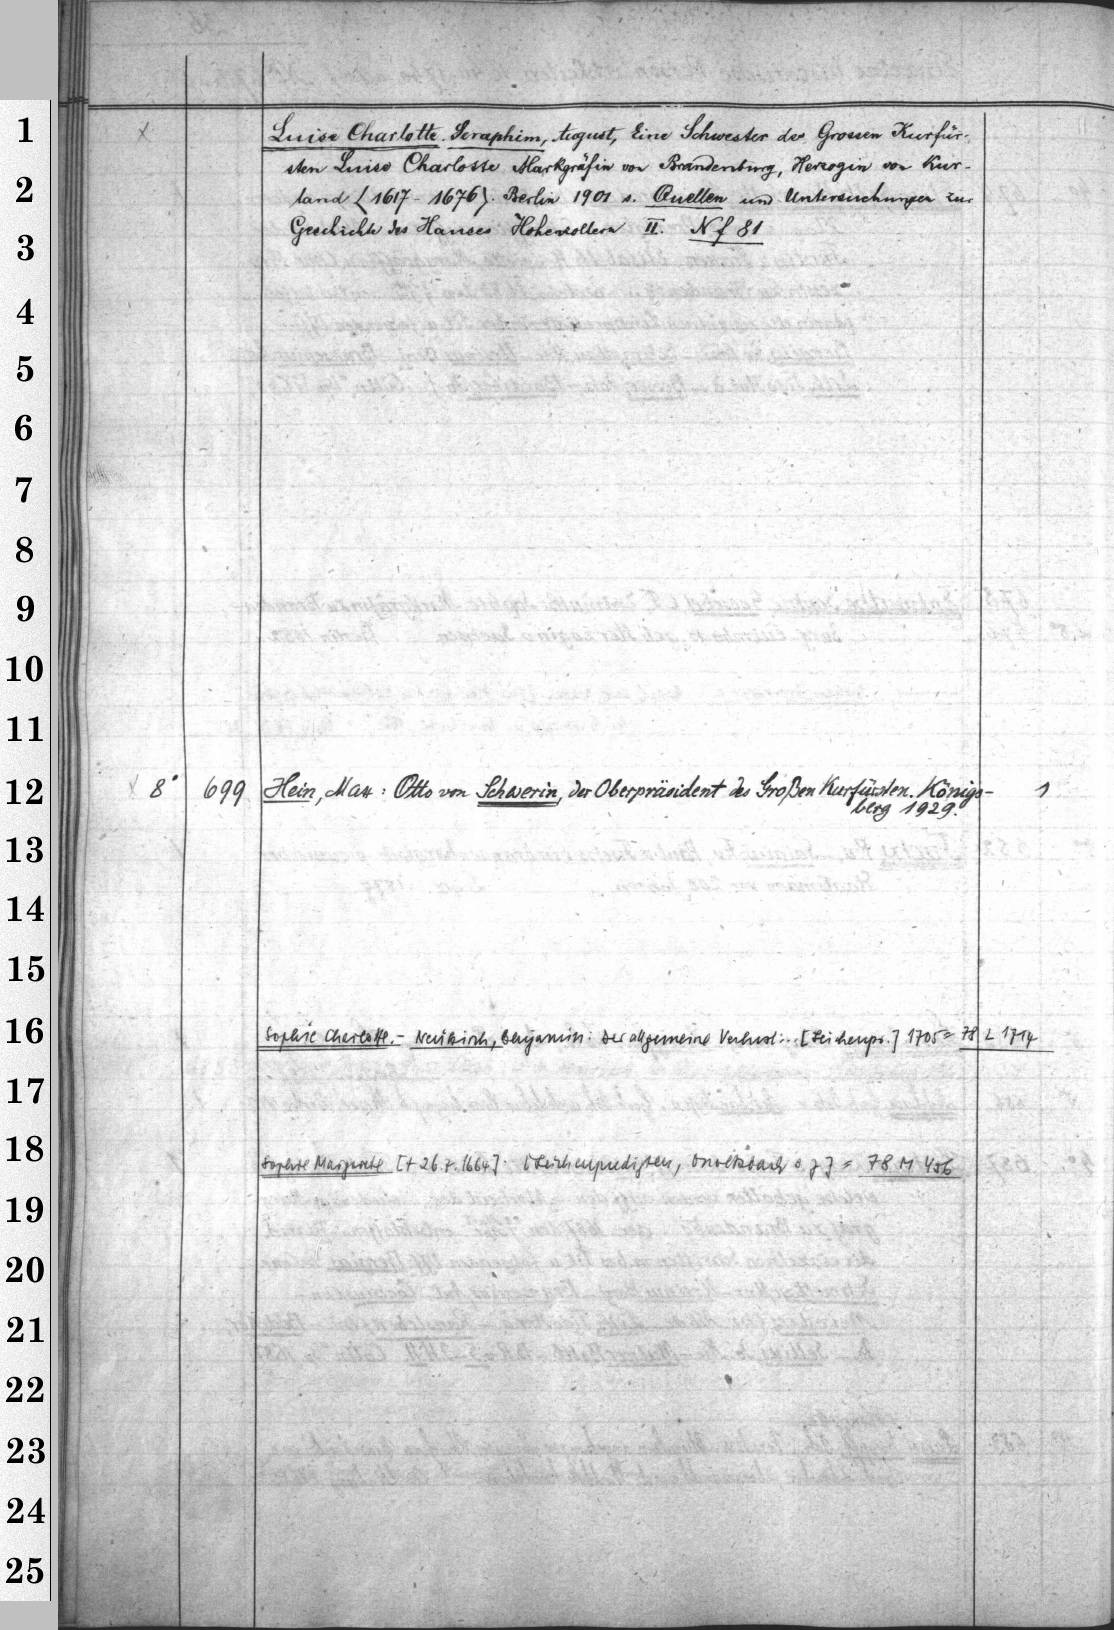 x Luise Charlotte. Seraphim, August, Eine Schwester des Grossen Kurfür-
sten Luise Charlotte Markgräfin von Brandenburg, Herzogin von Kur-
land (1617-1676). Berlin 1901 s. Quellen und Untersuchungen zur
Geschichte des Hauses Hohenzollern II. Nf 81
x 8° 699 Hein, Max: Otto von Schwerin, der Oberpräsident des Großen Kurfürsten. Königs- 1
berg 1929.
Sophie Charlotte.- Neukirch, Benjamin: Der allgemeine Verlust... [Leichenpr.] 1705 = 78 L 1714
Sophie Margarete [+ 26.7.1664]. [Leichenpredigten, Onoltzbach o. J.] = 78 M 456
1
2
3
4
5
6
7
8
9
10
11
12
13
14
15
16
17
18
19
20
21
22
23
24
25